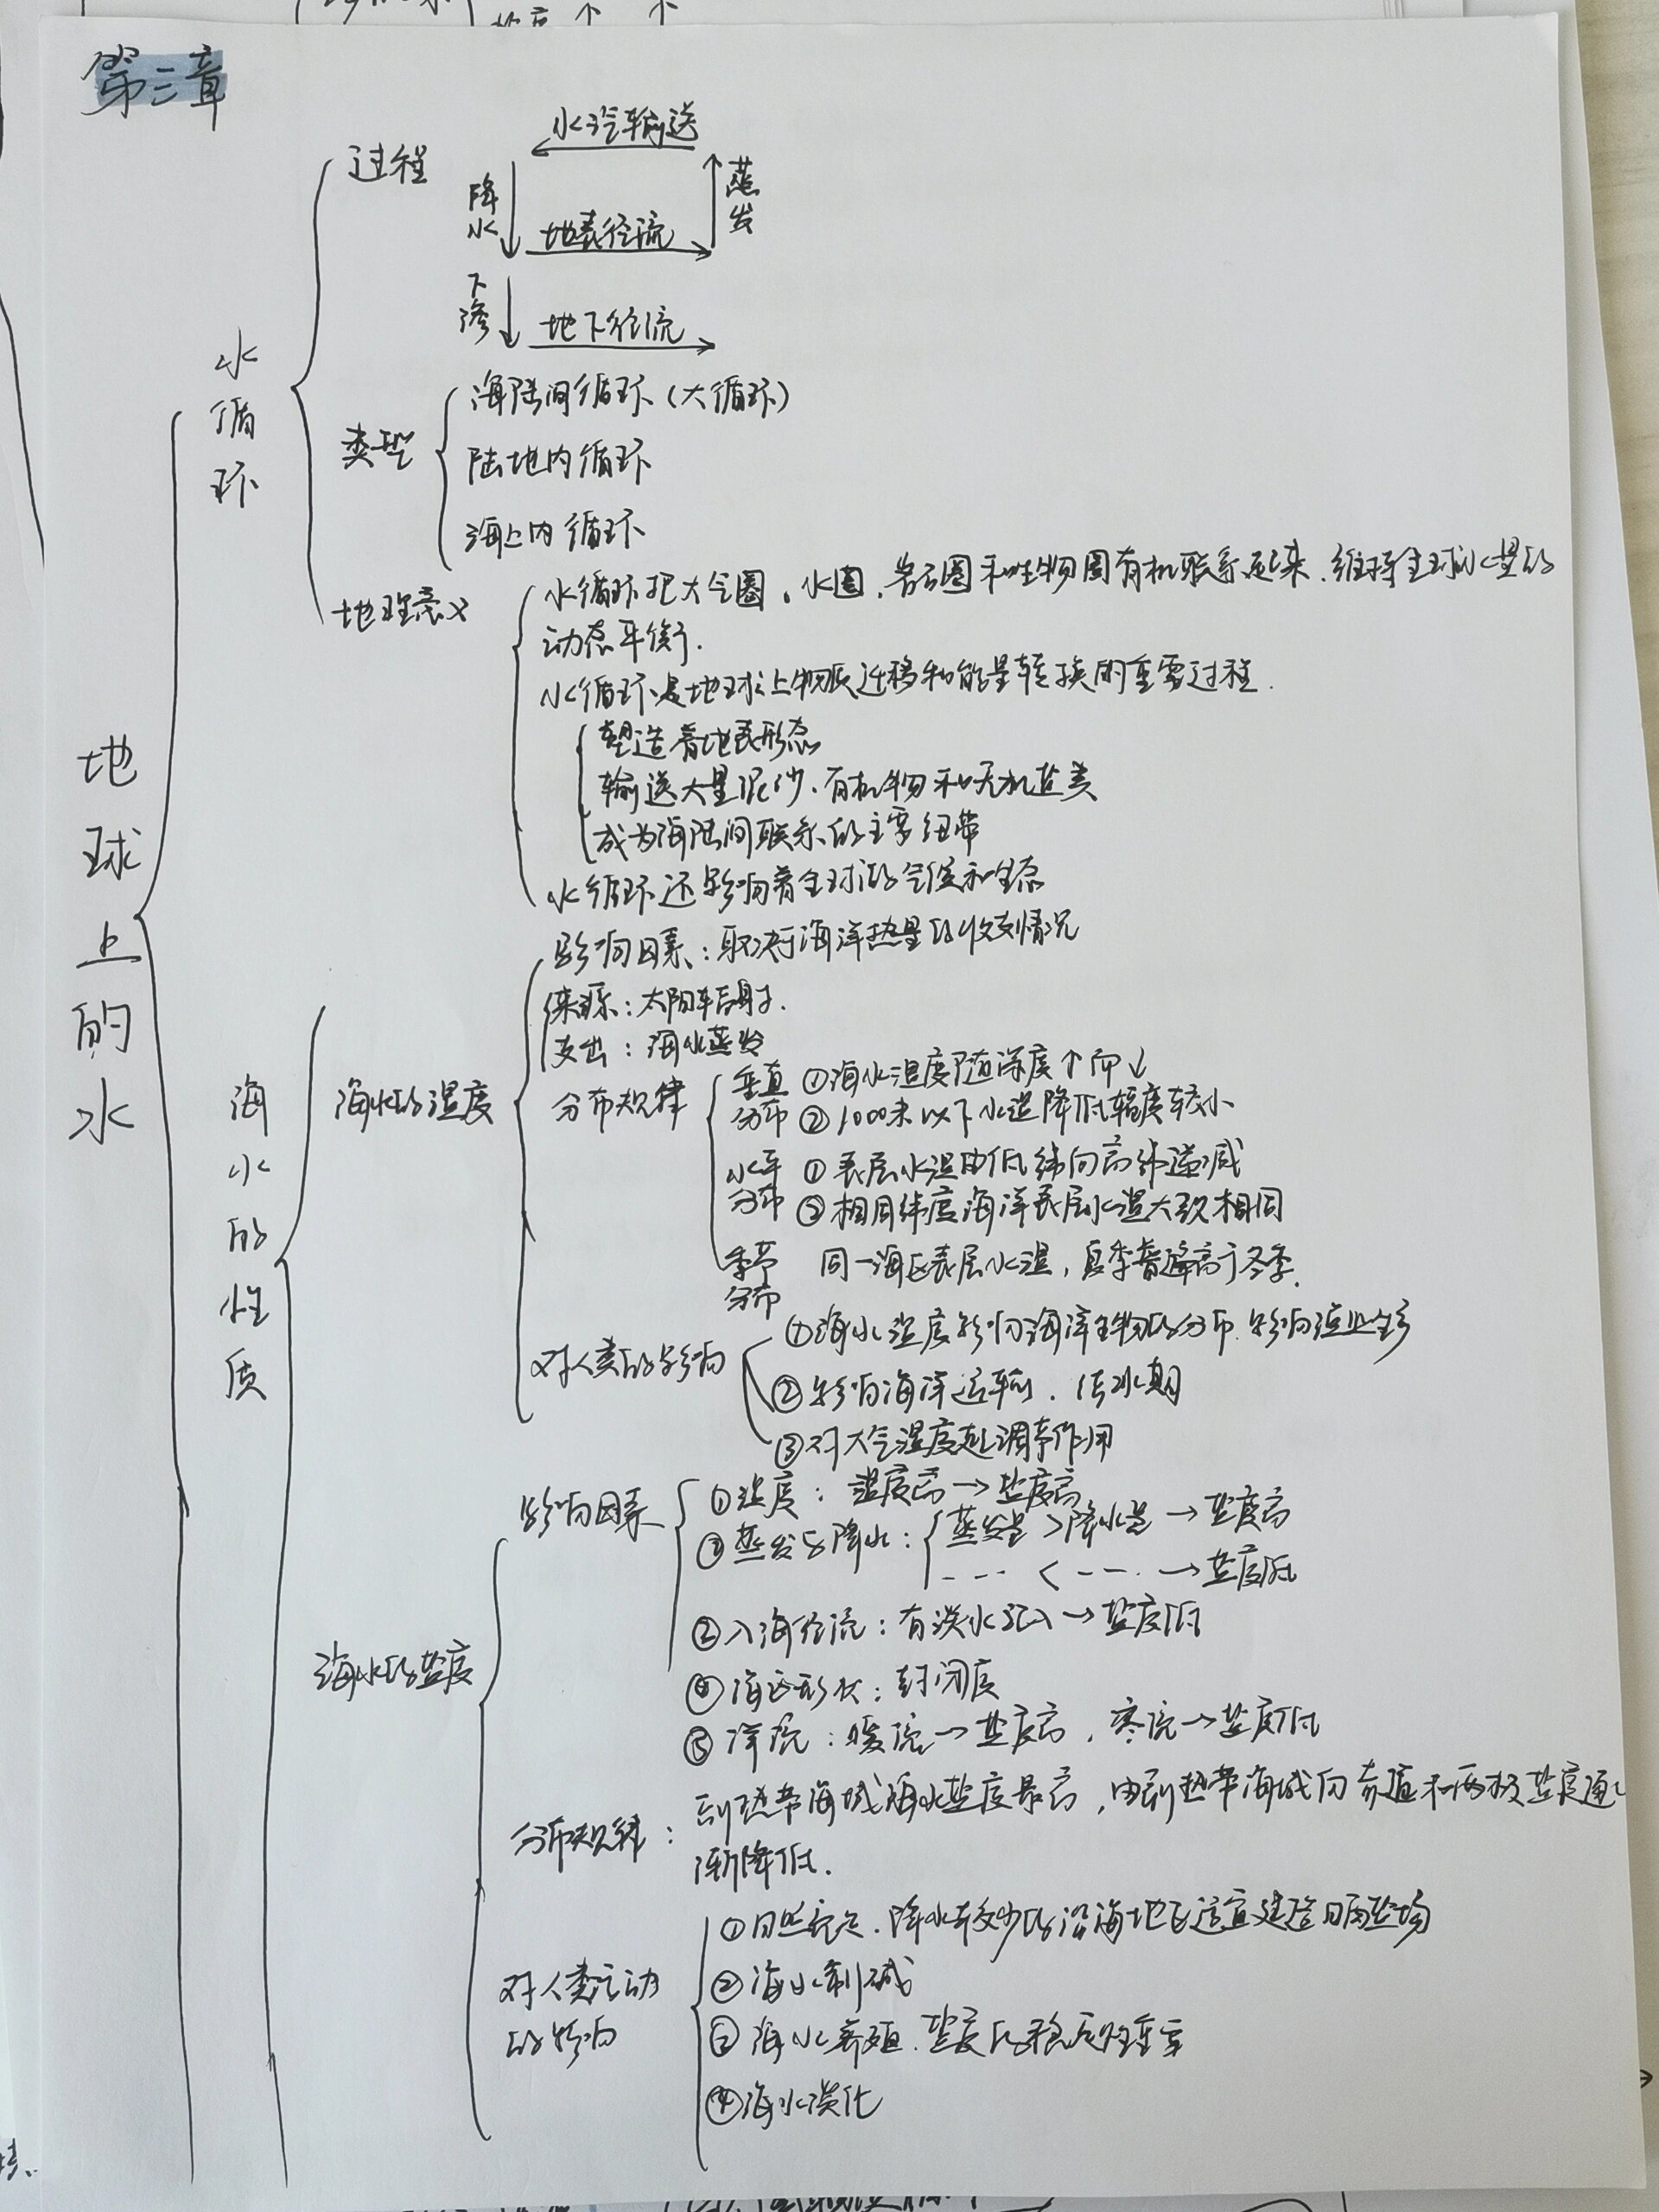 第三章
地球上的水
水循环
过程
水汽输送
降水
蒸发
地表径流
下渗
地下径流
类型
海陆间循环(大循环)
陆地内循环
海上内循环
地理意义
水循环把大气圈、水圈、岩石圈和生物圈有机联系起来、维持全球水量的
动态平衡.
水循环是地球上物质迁移和能量转换的重要过程.
塑造着地表形态
输送大量泥沙、有机物和无机盐类
成为海陆间联系的主要纽带
水循环还影响着全球的气候和生态
海水的性质
海水的温度
影响因素:取决于海洋热量的收支情况
来源:太阳辐射.
支出:海水蒸发
分布规律
垂直分布
①海水温度随深度↑而↓
②1000米以下水温降低幅度较小
水平分布
①表层水温由低纬向高纬递减
②相同纬度海洋表层水温大致相同
季节分布
同一海区表层水温,夏季普遍高于冬季.
对人类的影响
①海水温度影响海洋生物的分布.影响渔业生产
②影响海洋运输.结冰期
③对大气温度起调节作用
海水的盐度
影响因素
①温度:温度高→盐度高
②蒸发与降水:蒸发量>降水量→盐度高
--- < --- →盐度低
③入海径流:有淡水汇入→盐度低
④海区形状:封闭度
⑤洋流:暖流→盐度高,寒流→盐度低
分布规律:
副热带海域海水盐度最高,由副热带海域向赤道和两极盐度逐
渐降低.
对人类活动
的影响
①日照充足、降水较少的沿海地区适宜建造晒盐场
②海水制碱
③海水养殖.盐度的稳定性重要
④海水淡化